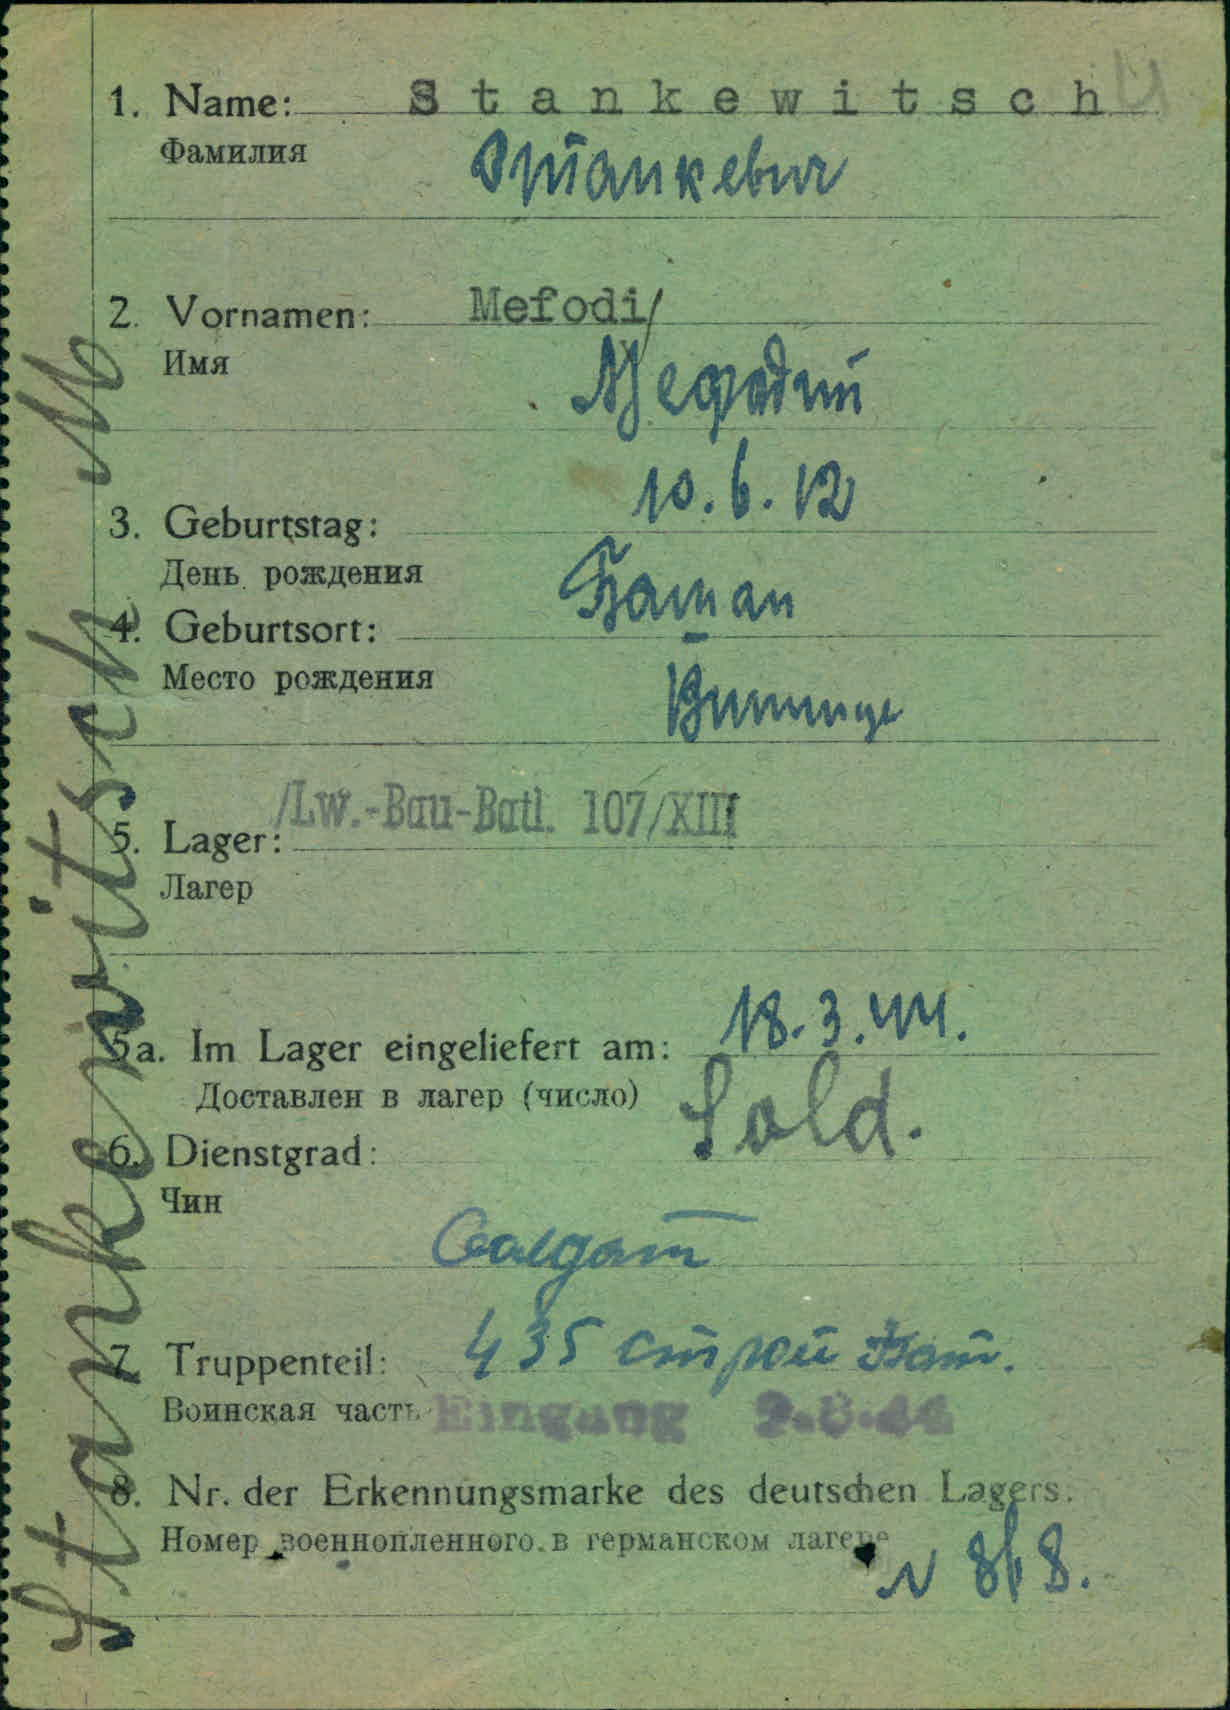 1. Name: Stankewitsch
Фамилия Станкевич
2. Vornamen: Mefodi/
Имя Мефодий
10.6.12
3. Geburtstag:
День рождения
4. Geburtsort:
Место рождения
/Lw.-Bau-Batl. 107/XIII
5. Lager:
Лагер
5a. Im Lager eingeliefert am: 18.3.44.
Доставлен в лагер (число)
6. Dienstgrad: Sold.
Чин
Солдат
7. Truppenteil: 435 строй Бат.
Воинская часть Eingang
8. Nr. der Erkennungsmarke des deutschen Lagers:
Номер военнопленного в германском лагере
N 868.
Stankewitsch M